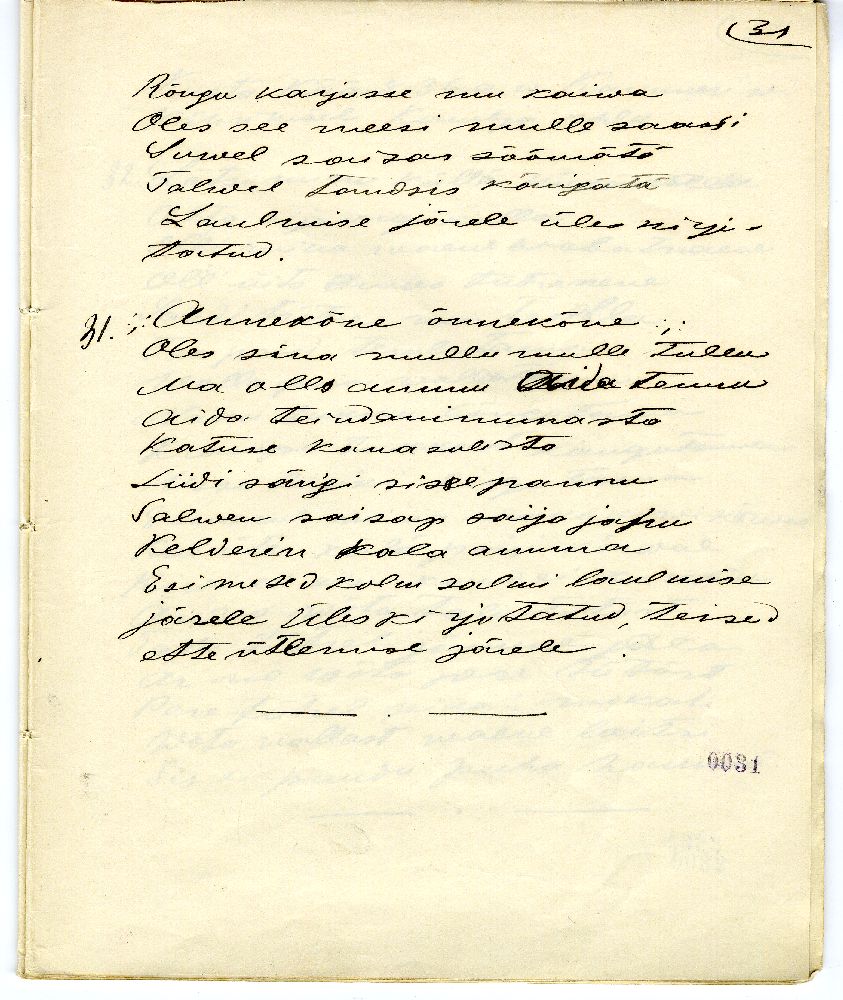 31
Rõngu karjusse mu kaiwa
Oles see meesi mulle saasi
Suwel saisas söömätä
Talwel tandsis kängätä
Laulmise järele üles kirju-
tatud.
31. :,: Annekõne õnnekõne :,:
Oles sina mulle mulle tullu
Ma olls ammu Aida tennu
Aida
Katuse kanasulista
Liidi särgi sisse pannu
Salwen saisap saija jahu
Kelderin kala amma
Esimesed kolm salmi laulmise
järele Üles kirjutatud, teised
ette ütlemise järele.
0031